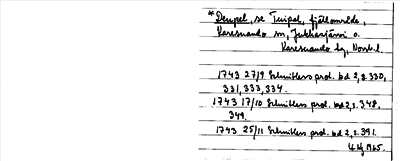 * Deupel, se Tuipal, fjällområde,
Karesuando sn, Jukkasjärvi o.
Karesuando lg, Norrb. l.
1743 27/9 Schnitlers prot. bd 2, s. 330,
331, 333, 334.
1743 17/10 Schnitlers prot. bd 2, s. 348,
349.
1743 25/11 Schnitlers prot. bd 2, s. 391.
1965.